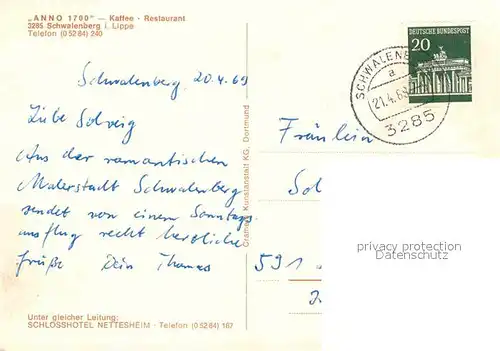 „ANNO 1700" — Kaffee - Restaurant
3285 Schwalenberg i. Lippe
Telefon (0 52 84) 240
Schwalenberg, 20.4.69
Liebe Solveig
Aus der romantischen
Malerstadt Schwalenberg
sendet von einem Sonntags
ausflug recht herzliche
Grüße Dein Thomas
Unter gleicher Leitung:
SCHLOSSHOTEL NETTESHEIM - Telefon (0 52 84) 167
Cramers Kunstanstalt KG, Dortmund
DEUTSCHE BUNDESPOST
20
SCHWALENB
a
21.4.69
3285
Fräulein
So
591
privacy protection
Datenschutz